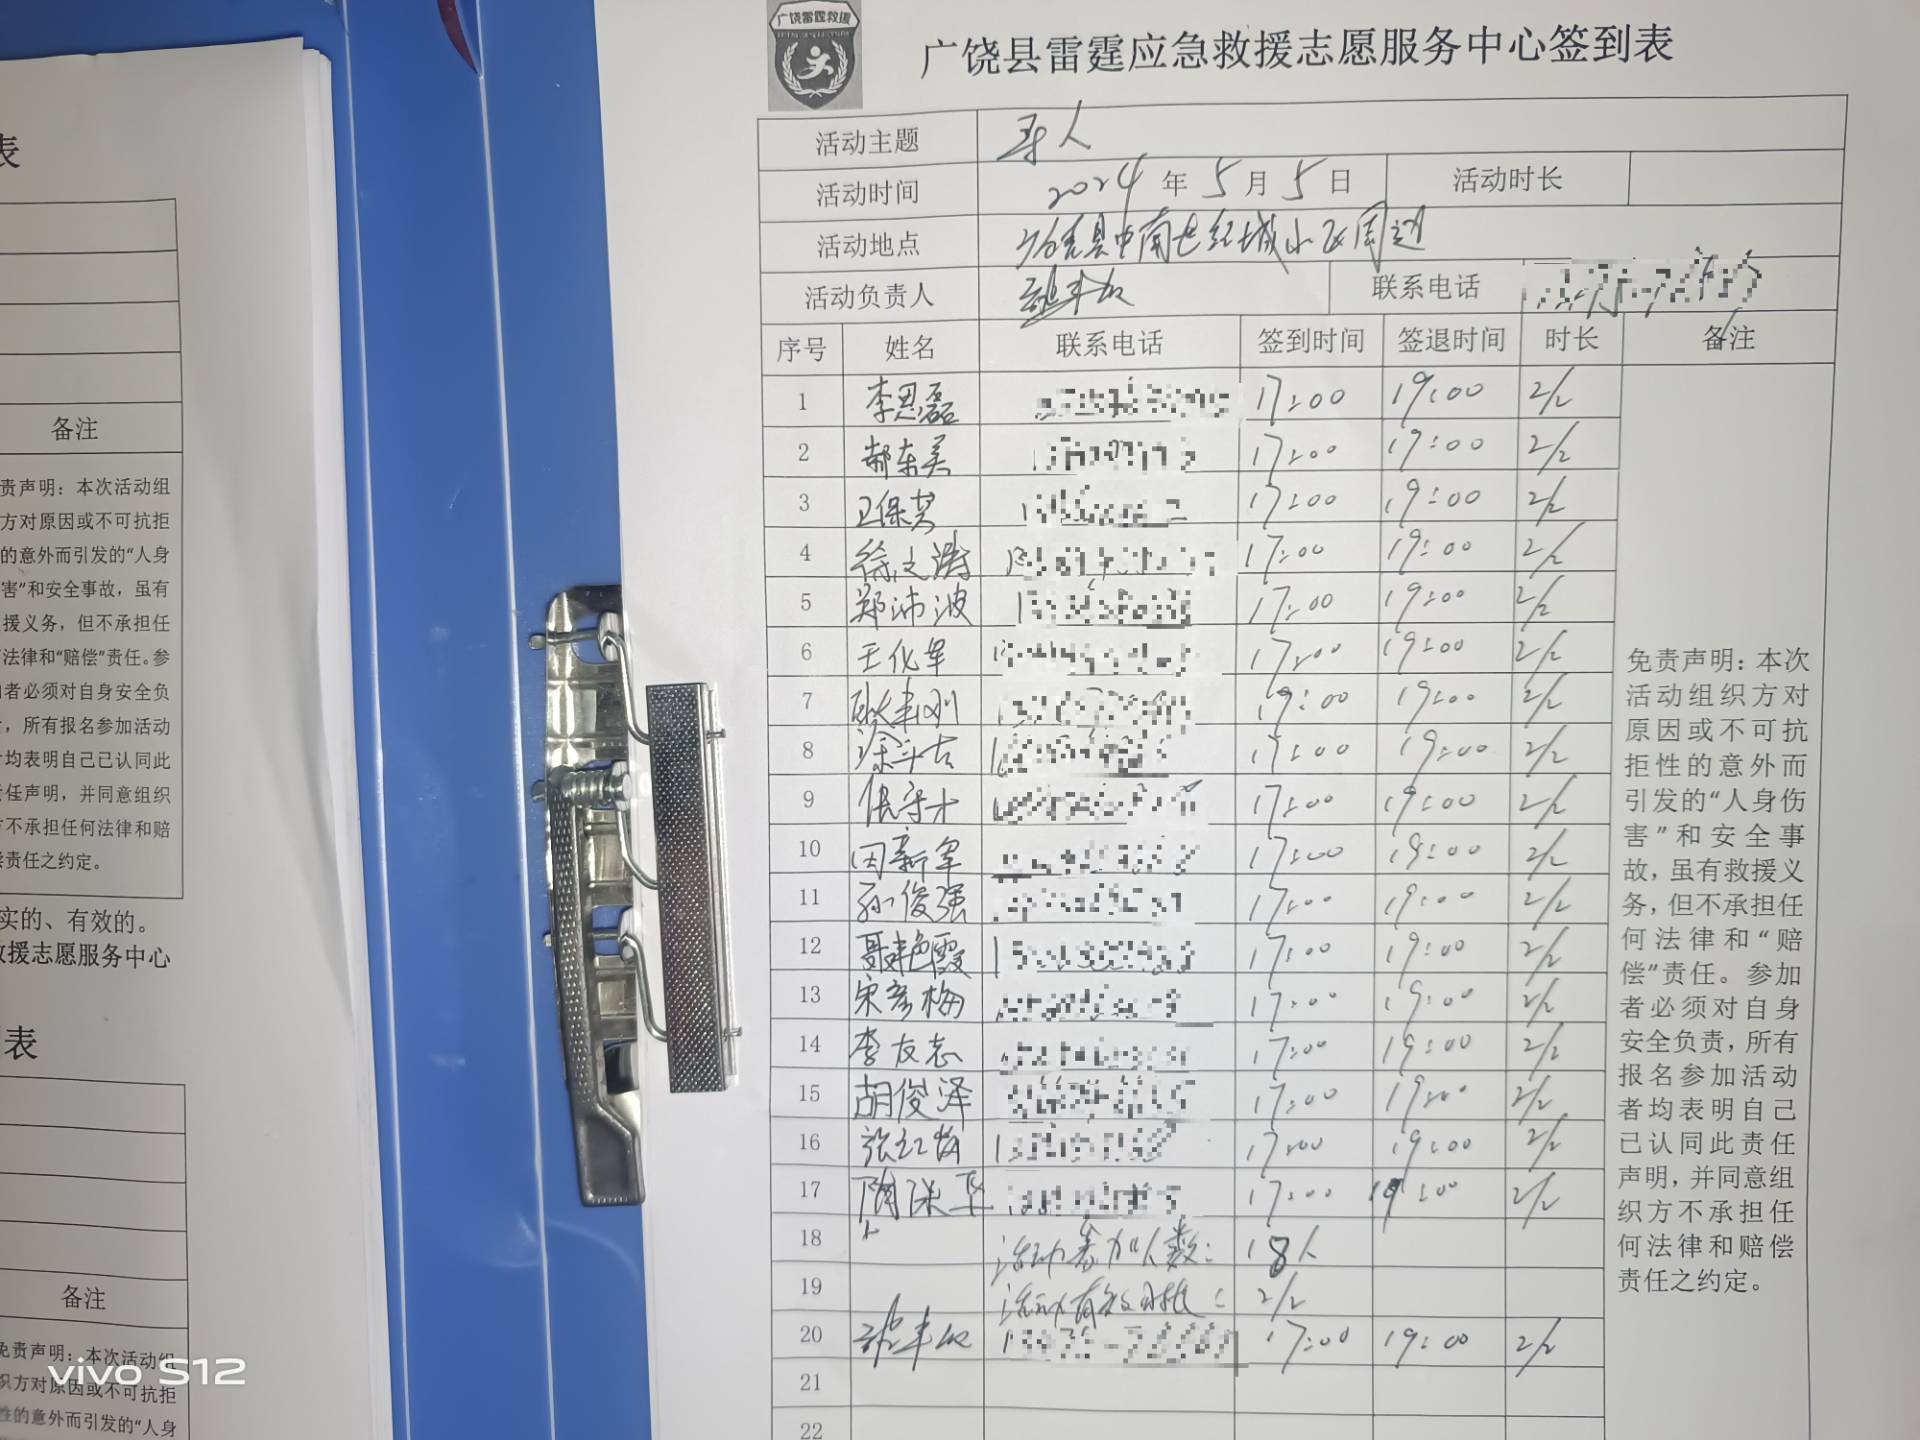 广饶雷霆救援
广饶县雷霆应急救援志愿服务中心签到表
活动主题 寻人
活动时间 2024年5月5日 活动时长
活动地点 广饶县中南世纪城小区周边
活动负责人 联系电话
序号 姓名 联系电话 签到时间 签退时间 时长 备注
1 李思磊 17:00 19:00 2/2
2 郝东美 17:00 19:00 2/2
3 卫保芹 17:00 19:00 2/2
4 徐文涛 17:00 19:00 2/2
5 郑沛波 17:00 19:00 2/2
6 王化军 17:00 19:00 2/2
7 19:00 19:00 2/2
8 17:00 19:00 2/2
9 17:00 19:00 2/2
10 新军 17:00 19:00 2/2
11 孙俊强 17:00 19:00 2/2
12 聂艳霞 17:00 19:00 2/2
13 宋彦梅 17:00 19:00 2/2
14 李友志 17:00 19:00 2/2
15 胡俊泽 17:00 19:00 2/2
16 张红梅 17:00 19:00 2/2
17 17:00 19:00 2/2
18 活动参加人数: 18人
19 活动有效时长: 2/2
20 17:00 19:00 2/2
21
22
免责声明：本次
活动组织方对
原因或不可抗
拒性的意外而
引发的“人身伤
害”和安全事
故，虽有救援义
务，但不承担任
何法律和“赔
偿”责任。参加
者必须对自身
安全负责，所有
报名参加活动
者均表明自己
已认同此责任
声明，并同意组
织方不承担任
何法律和赔偿
责任之约定。
表
备注
责声明：本次活动组
方对原因或不可抗拒
的意外而引发的“人身
害”和安全事故，虽有
援义务，但不承担任
法律和“赔偿”责任。参
者必须对自身安全负
，所有报名参加活动
均表明自己已认同此
任声明，并同意组织
不承担任何法律和赔
责任之约定。
实的、有效的。
救援志愿服务中心
表
备注
免责声明：本次活动组
织方对原因或不可抗拒
性的意外而引发的“人身
vivo S12